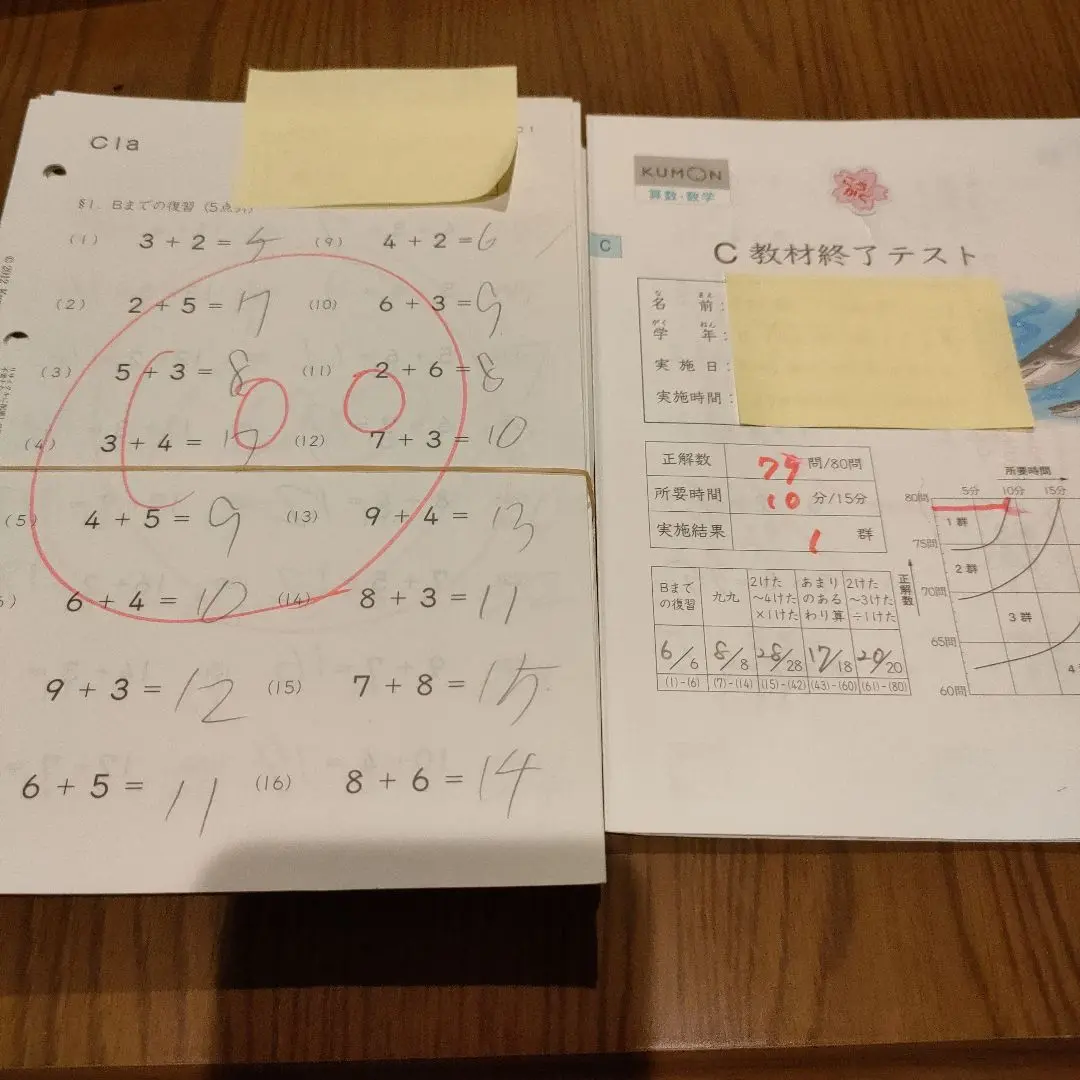 C1a
§1. Bまでの復習 (5点
(1) 3 + 2 = 5 (9) 4 + 2 = 6
(2) 2 + 5 = 7 (10) 6 + 3 = 9
(3) 5 + 3 = 8 (11) 2 + 6 = 8
(4) 3 + 4 = 7 (12) 7 + 3 = 10
(5) 4 + 5 = 9 (13) 9 + 4 = 13
6 + 4 = 10 (14) 8 + 3 = 11
9 + 3 = 12 (15) 7 + 8 = 15
6 + 5 = 11 (16) 8 + 6 = 14
100
KUMON
算数・数学
C
C 教材終了テスト
名前:
なまえ
学年:
がくねん
実施日:
実施時間:
正解数 79 問/80問
所要時間 10 分/15分
実施結果 1 群
Bまでの復習 九九 2けた～4けた×1けた あまりのあるわり算 2けた～3けた÷1けた
6/6 8/8 28/28 17/18 20/20
(1)-(6) (7)-(14) (15)-(42) (43)-(60) (61)-(80)
所要時間
5分 10分 15分
正解数
80問
75問
70問
65問
60問
1群
2群
3群
4